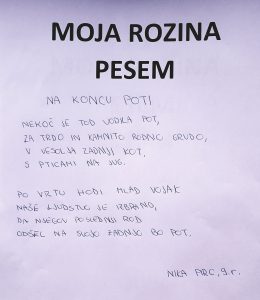 MOJA ROZINA
PESEM
NA KONCU POTI
NEKOČ JE TOD VODILA POT,
ZA TRDO IN KAMNITO RODNO GRUDO,
V VESOLJA ZADNJI KOT,
S PTICAMI NA JUG.
PO VRTU HODI MLAD VOJAK
NAŠE LJUDSTVO JE IZBRANO,
DA NJEGOV POSLEDNJI ROD
ODŠEL NA SVOJO ZADNJO BO POT.
NIKA ARC, 9. r.